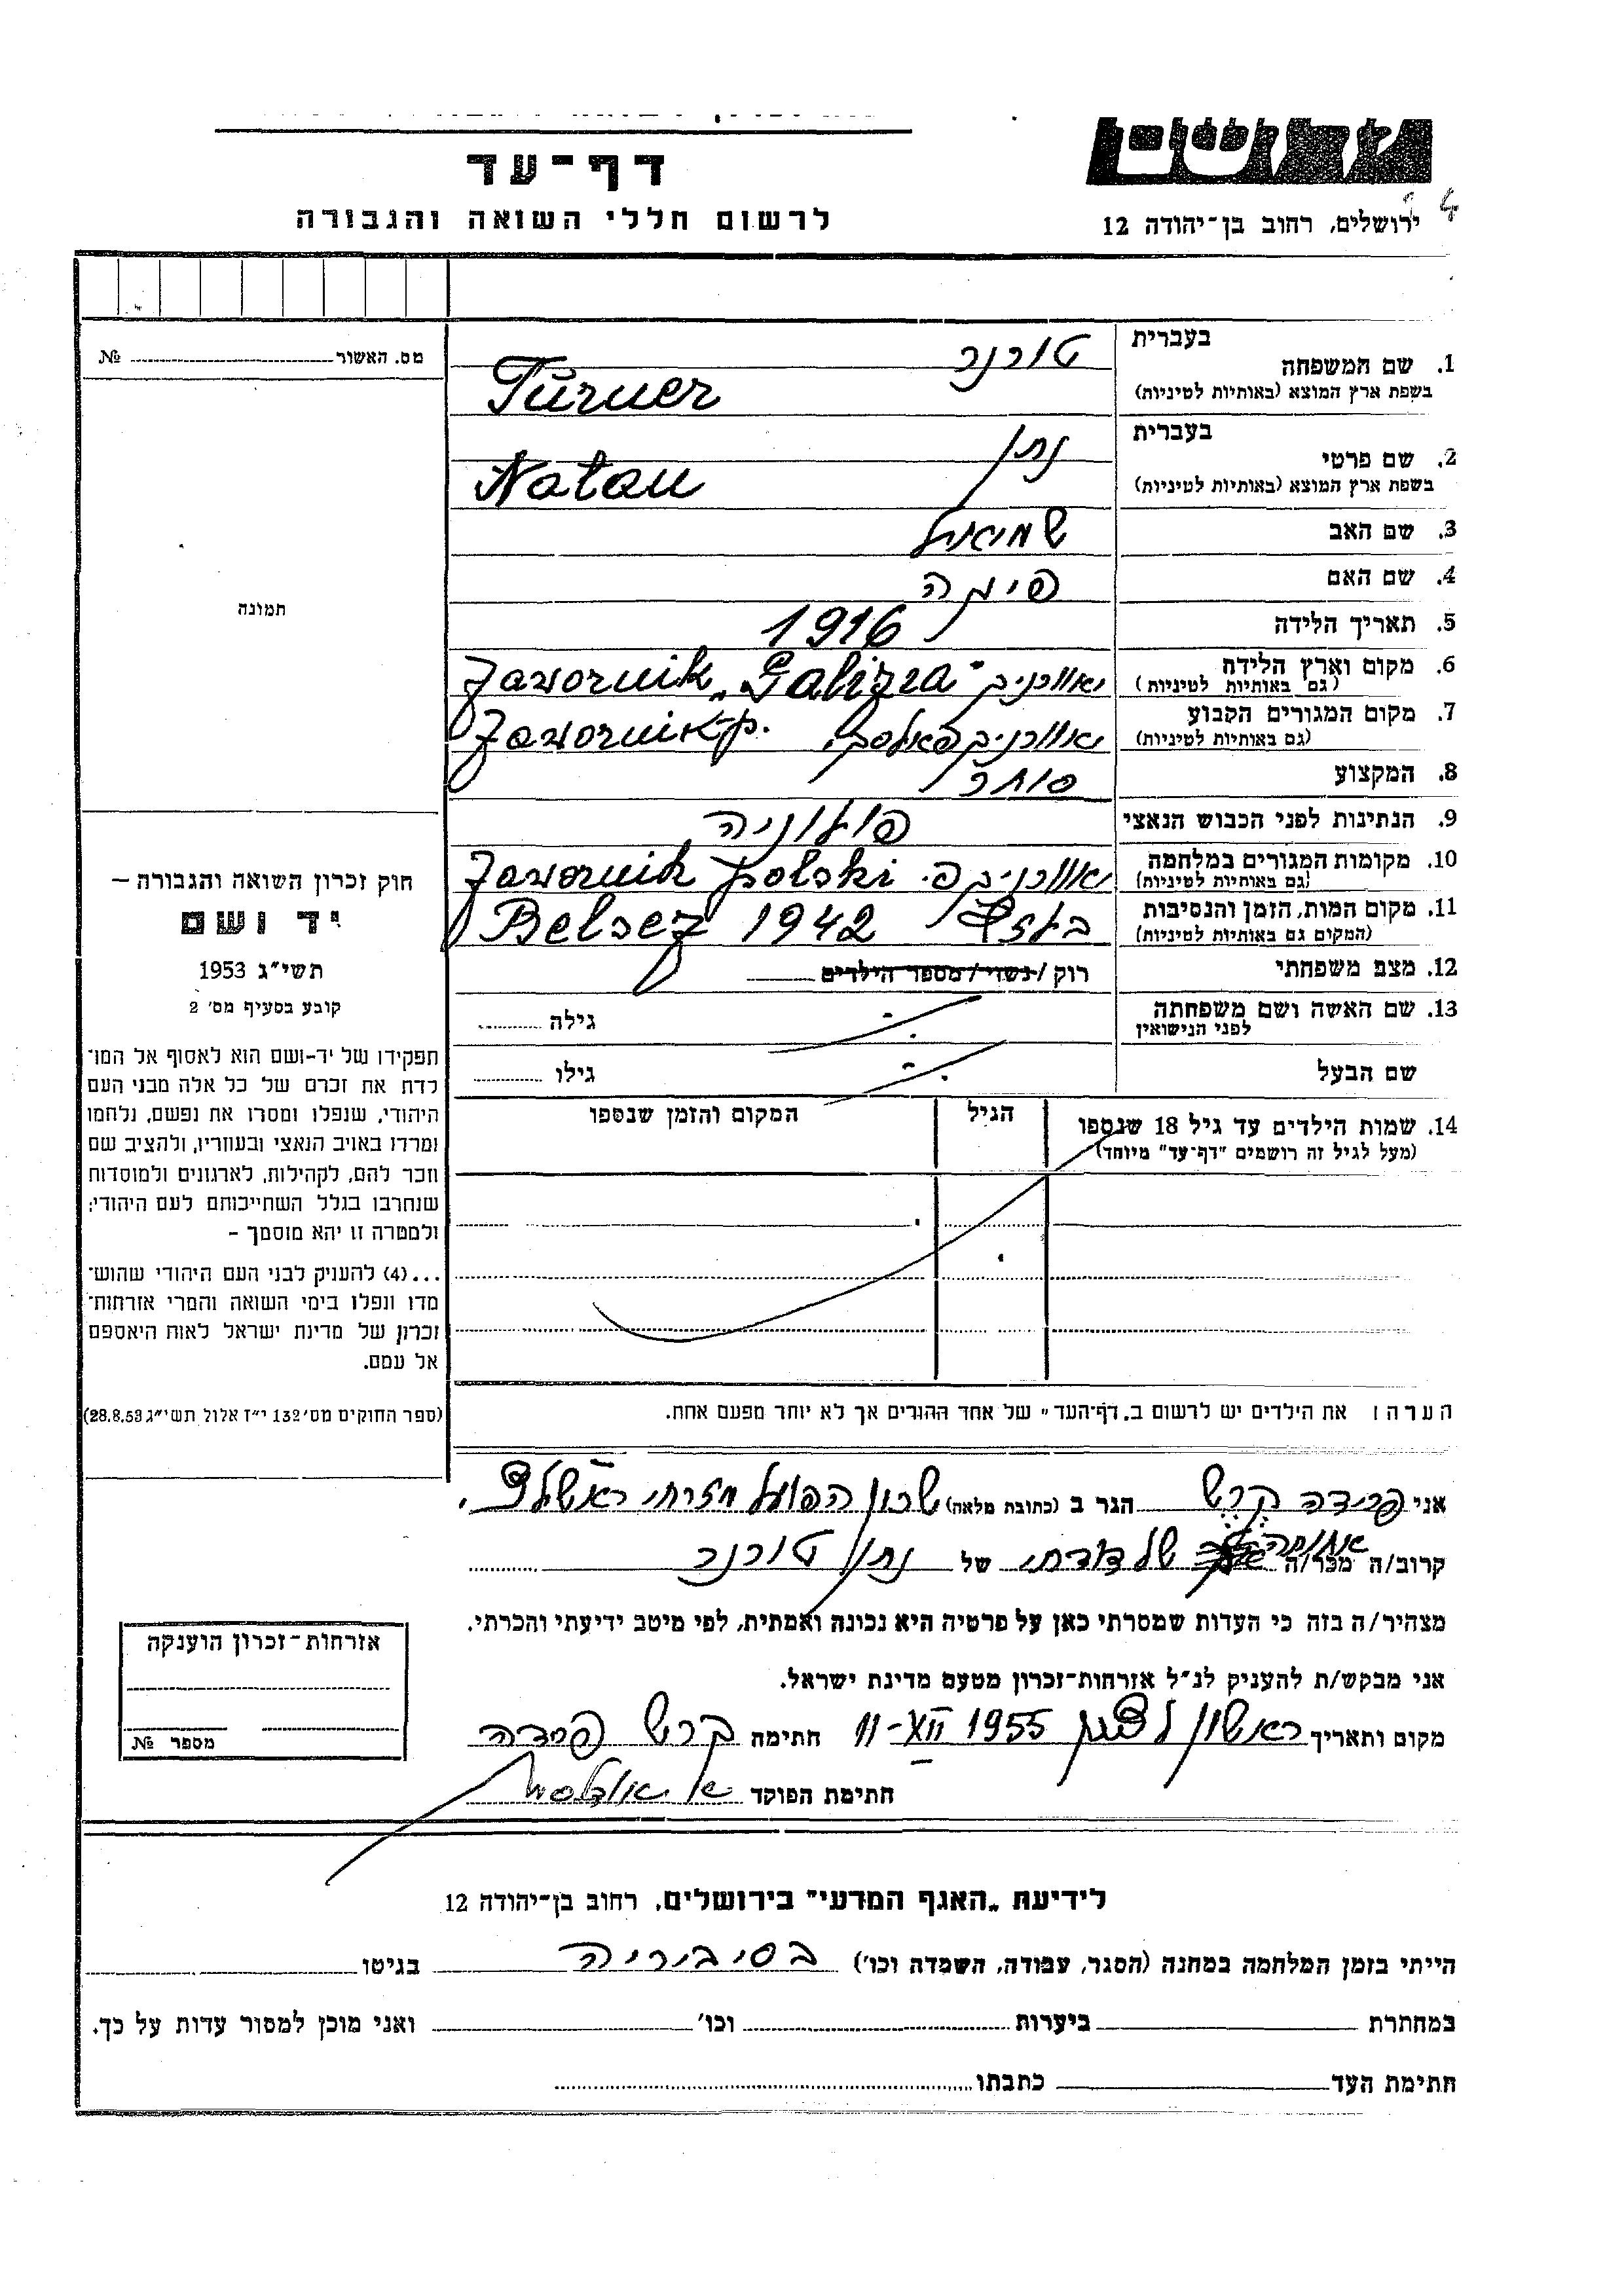 יד ושם
ירושלים, רחוב בן־יהודה 12
דף־עד
לרשום חללי השואה והגבורה
מס. האשור № 
תמונה
בעברית
1. שם המשפחה טורנר
בשפת ארץ המוצא (באותיות לטיניות) Türner
בעברית
2. שם פרטי נתן
בשפת ארץ המוצא (באותיות לטיניות) Natan
3. שם האב שמואל
4. שם האם סימה
5. תאריך הלידה 1916
6. מקום וארץ הלידה יאוורניק "Jawornik „Galizia
(גם באותיות לטיניות)
7. מקום המגורים הקבוע יאוורניק פאלסקי Jawornik-p.
(גם באותיות לטיניות)
8. המקצוע סוחר
9. הנתינות לפני הכבוש הנאצי פולוניה
10. מקומות המגורים במלחמה יאוורניק פ. Jawornik polski
(גם באותיות לטיניות)
11. מקום המות, הזמן והנסיבות בלזץ Belzez 1942
(המקום גם באותיות לטיניות)
12. מצב משפחתי רוק / נשוי / מספר הילדים
13. שם האשה ושם משפחתה לפני הנישואין גילה
שם הבעל גילו
14. שמות הילדים עד גיל 18 שנספו הגיל המקום והזמן שנספו
(מעל לגיל זה רושמים "דף־עד" מיוחד)
הערה: את הילדים יש לרשום ב„דף־העד" של אחד ההורים אך לא יותר מפעם אחת.
חוק זכרון השואה והגבורה –
יד ושם
תשי״ג 1953
קובע בסעיף מס׳ 2
תפקידו של יד-ושם הוא לאסוף אל המו־
לדת את זכרם של כל אלה מבני העם
היהודי, שנפלו ומסרו את נפשם, נלחמו
ומרדו באויב הנאצי ובעוזריו, ולהציב שם
וזכר להם, לקהילות, לארגונים ולמוסדות
שנחרבו בגלל השתייכותם לעם היהודי;
ולמטרה זו יהא מוסמך –
...(4) להעניק לבני העם היהודי שהוש־
מדו ונפלו בימי השואה והמרי אזרחות־
זכרון של מדינת ישראל לאות היאספם
אל עמם.
(ספר החוקים מס׳ 132 י״ז אלול תשי״ג 28.8.53)
אני פרידה קרש הגר ב (כתובת מלאה) שכון הפועל מזרחי ראשל״צ
קרוב/ה מכר/ה של דודתי של נתן טורנר
מצהיר/ה בזה כי העדות שמסרתי כאן על פרטיה היא נכונה ואמתית, לפי מיטב ידיעתי והכרתי.
אני מבקש/ת להעניק לנ״ל אזרחות־זכרון מטעם מדינת ישראל.
מקום ותאריך ראשון לציון 11-XII 1955 חתימה קרש פרידה
חתימת הפוקד
אזרחות־זכרון הוענקה
מספר №
לידיעת „האגף המדעי" בירושלים, רחוב בן־יהודה 12
הייתי בזמן המלחמה במחנה (הסגר, עבודה, השמדה וכו׳) בסיביריה בגיטו
במחתרת ביערות וכו׳ ואני מוכן למסור עדות על כך.
חתימת העד כתבתו